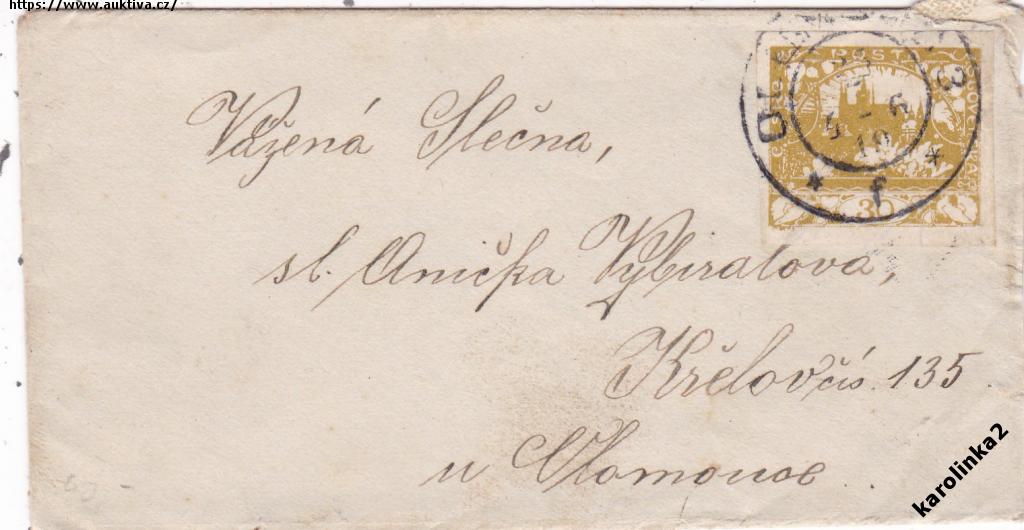 https://www.auktiva.cz/
POSTA
30
19
f
Vážená Slečna,
sl. Anička Vybiralova,
Křelov čís. 135
u Olomouce
karolinka2